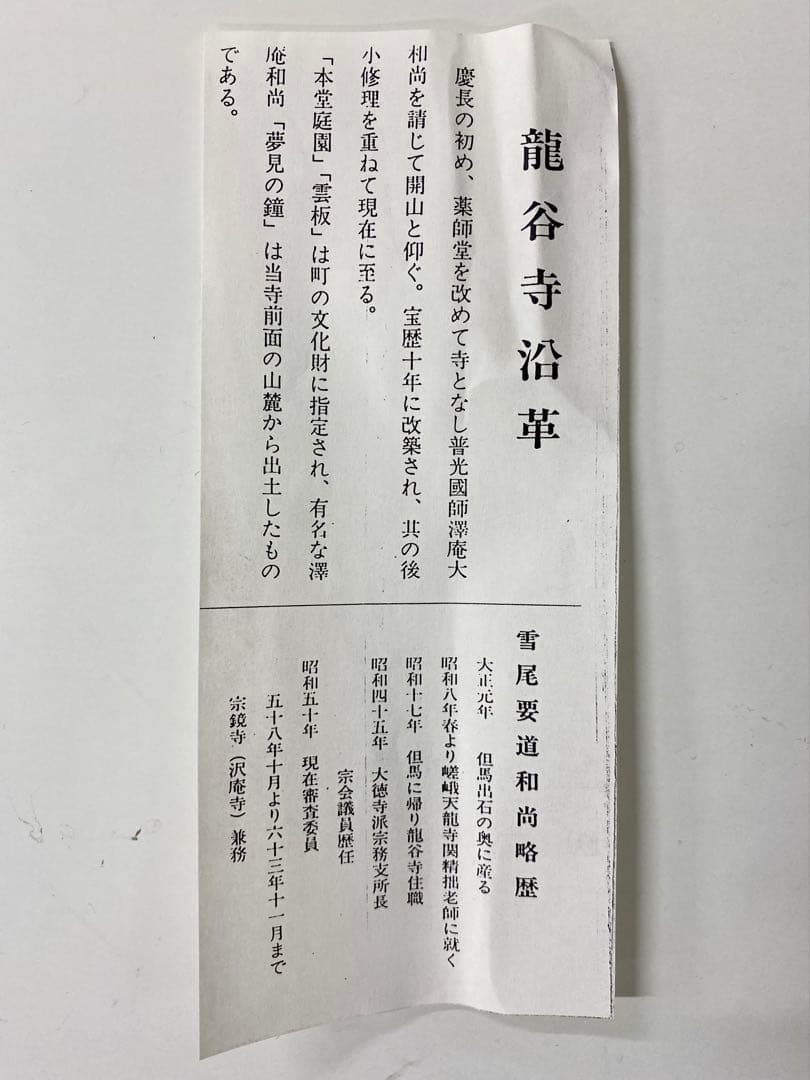 龍谷寺沿革
慶長の初め、薬師堂を改めて寺となし普光國師澤庵大
和尚を請じて開山と仰ぐ。宝歴十年に改築され、其の後
小修理を重ねて現在に至る。
「本堂庭園」「雲板」は町の文化財に指定され、有名な澤
庵和尚「夢見の鐘」は当寺前面の山麓から出土したもの
である。
雪尾要道和尚略歴
大正元年　但馬出石の奥に産る
昭和八年春より嵯峨天龍寺関精拙老師に就く
昭和十七年　但馬に帰り龍谷寺住職
昭和四十五年　大徳寺派宗務支所長
宗会議員歴任
昭和五十年　現在審査委員
五十八年十月より六十三年十一月まで
宗鏡寺（沢庵寺）兼務